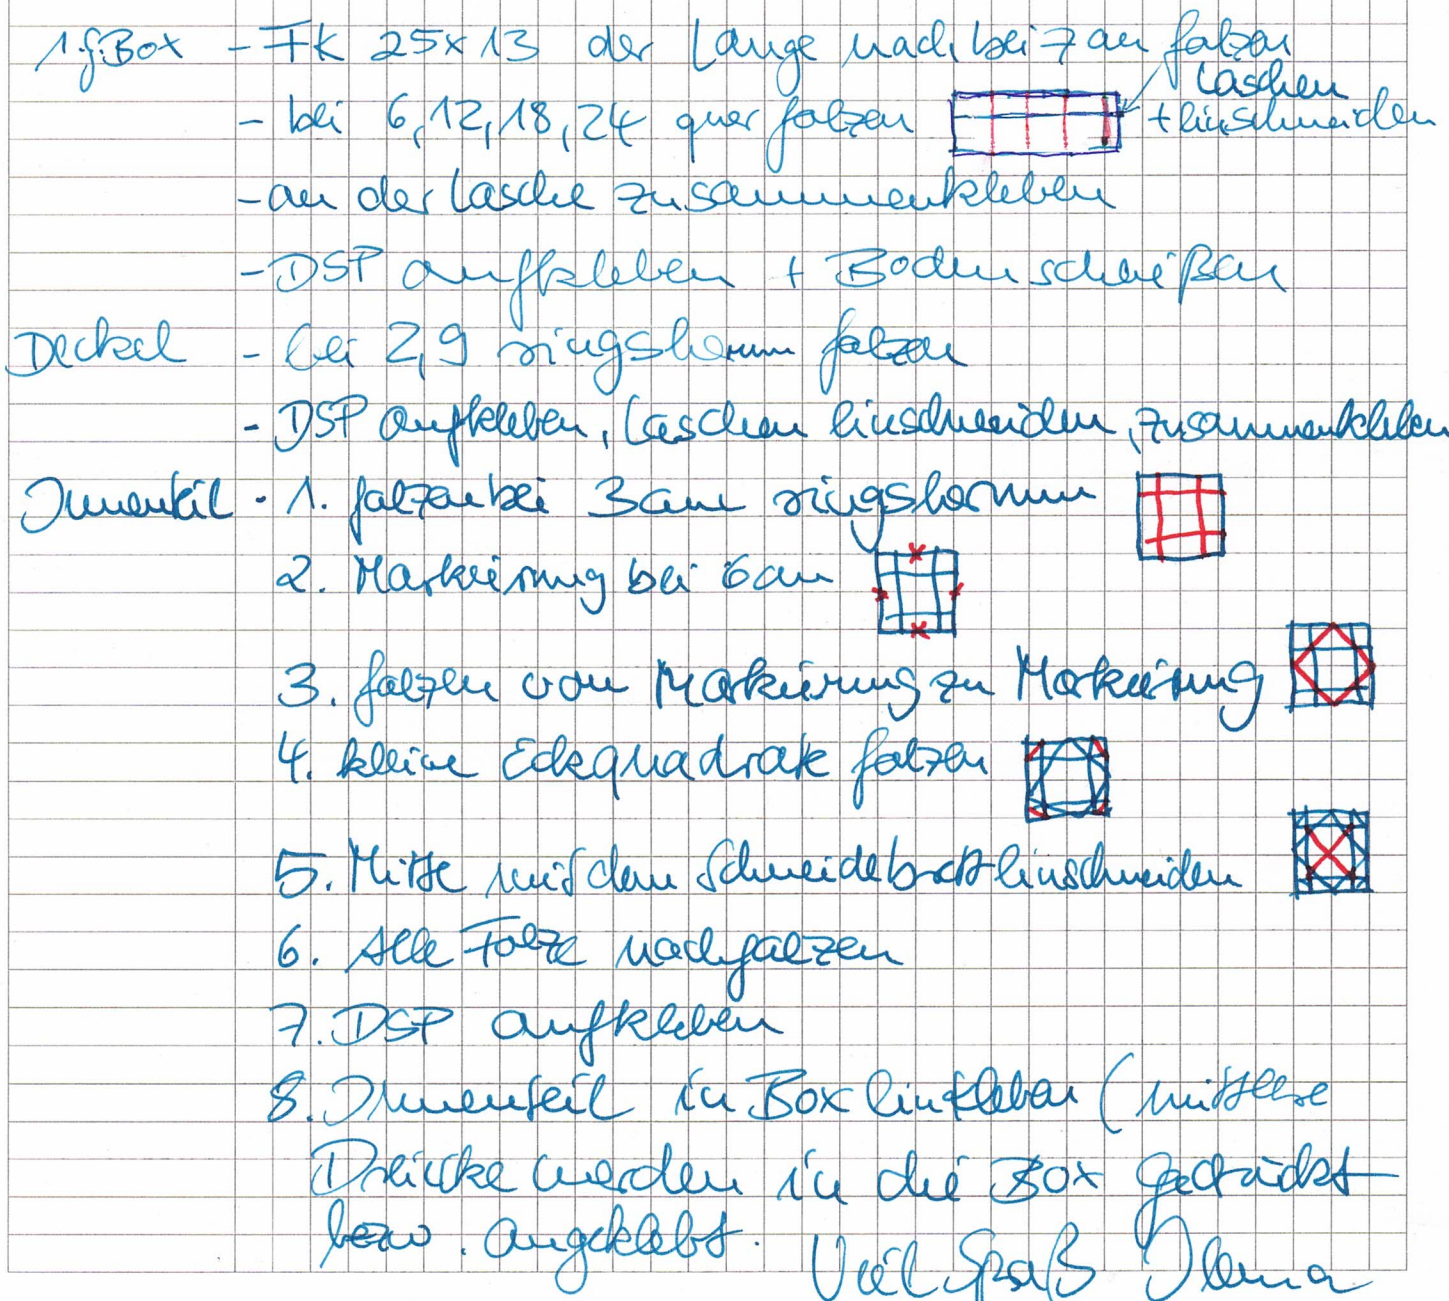 1. f. Box - FK 25x13 der Länge nach bei 7 cm falzen
Laschen
- bei 6, 12, 18, 24 quer falzen + einschneiden
- an der Lasche zusammenkleben
- DSP aufkleben + Boden schließen
Deckel - bei 2, 9 ringsherum falzen
- DSP aufkleben, Laschen einschneiden, zusammenkleben
Innenteil - 1. falzen bei 3 cm ringsherum
2. Markierung bei 6 cm
3. falzen von Markierung zu Markierung
4. kleine Eckquadrate falzen
5. Mitte mit dem Schneidebrett einschneiden
6. Alle Falze nachfalzen
7. DSP aufkleben
8. Innenteil in Box einkleben (mittlere
Dreiecke werden in die Box gedrückt
bzw. angeklebt.
Viel Spaß